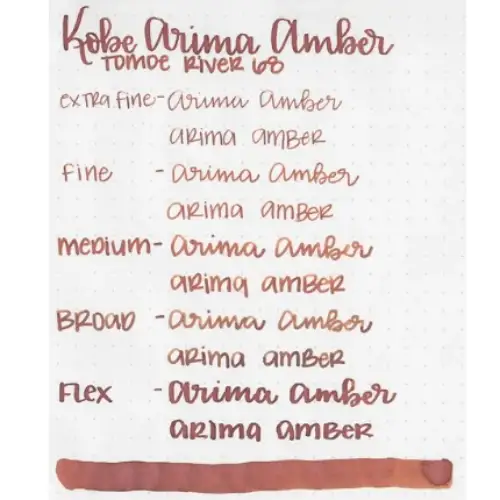 Kobe Arima Amber
TOMOE RIVER 68
EXTRA FINE - Arima Amber
ARIMA AMBER
FINE - Arima Amber
ARIMA AMBER
MEDIUM - Arima Amber
ARIMA AMBER
BROAD - Arima Amber
ARIMA AMBER
FLEX - Arima Amber
ARIMA AMBER